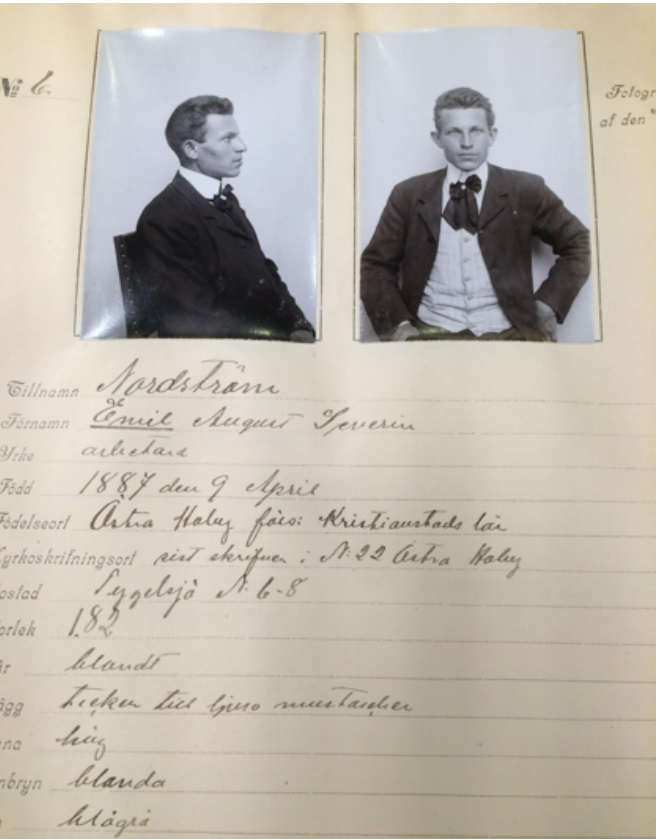 № 6.
Fotogr
af den
Tillnamn Nordström
Förnamn Emil August Severin
Yrke arbetare
Född 1887 den 9 April
Födelseort Östra Hoby förs: Kristianstads län
Kyrkoskrifningsort sist skrifven i N: 22 Östra Hoby
ostad Tygelsjö N. 6-8
orlek 1.82
år blondt
ägg tecken till ljusa mustascher
na hög
nbryn blonda
blågrå